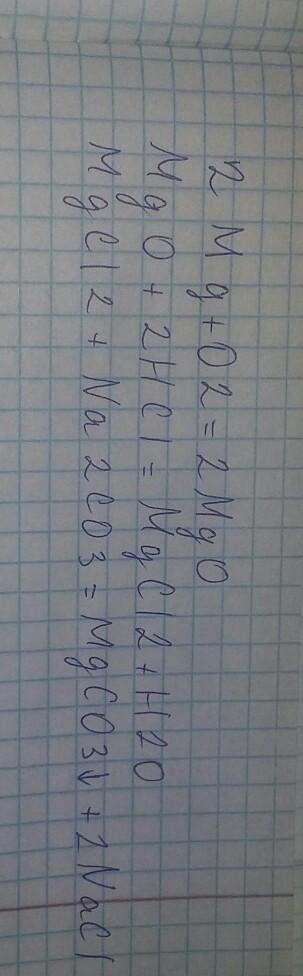 2Mg+O2=2MgO
MgO+2HCl=MgCl2+H2O
MgCl2+Na2CO3=MgCO3↓+2NaCl